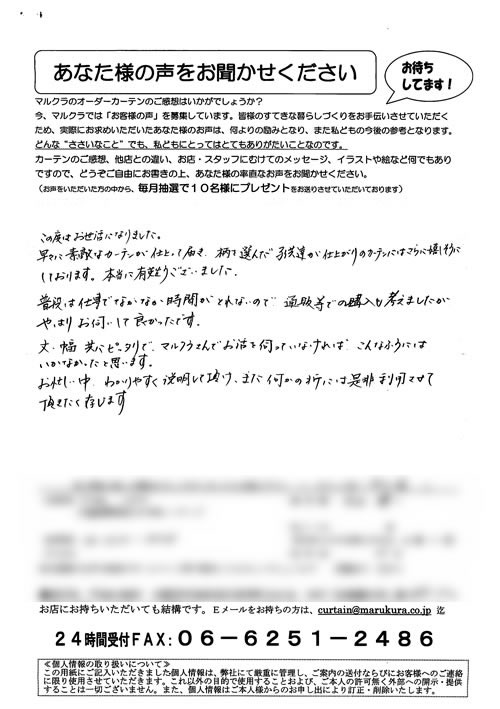 あなた様の声をお聞かせください
お待ち
してます！
マルクラのオーダーカーテンのご感想はいかがでしょうか？
今、マルクラでは「お客様の声」を募集しています。皆様のすてきな暮らしづくりをお手伝いさせていただく
ため、実際にお求めいただいたあなた様のお声は、何よりの励みとなり、また私どもの今後の参考となります。
どんな“ささいなこと”でも、私どもにとってはとてもありがたいことなのです。
カーテンのご感想、他店との違い、お店・スタッフにむけてのメッセージ、イラストや絵など何でもあり
ですので、どうぞご自由にお書きの上、あなた様の率直なお声をお聞かせください。
（お声をいただいた方の中から、毎月抽選で１０名様にプレゼントをお送りさせていただいております）
この度はお世話になりました。
早々に素敵なカーテンが仕上がって届き、柄を選んだ子供達が仕上がりのカーテンにはさらに嬉しそうに
しております。本当に有難うございました。
普段は仕事でなかなか時間がとれないので通販等での購入も考えましたが
やっぱりお伺いして良かったです。
丈・幅共にピッタリで、マルクラさんでお話を伺っていなければ、こんなふうには
いかなかったと思います。
お忙しい中、わかりやすく説明して頂け、また何かの折には是非利用させて
頂きたく存じます
お店にお持ちいただいても結構です。Ｅメールをお持ちの方は、curtain@marukura.co.jp 迄
２４時間受付FAX：０６－６２５１－２４８６
≪個人情報の取り扱いについて≫
この用紙にご記入いただきました個人情報は、弊社にて厳重に管理し、ご案内の送付ならびにお客様へのご連絡
に限り使用させていただきます。これ以外の目的で使用することおよび、ご本人の許可無く外部への開示・提供
することは一切ございません。また、個人情報はご本人様からのお申し出により訂正・削除いたします。